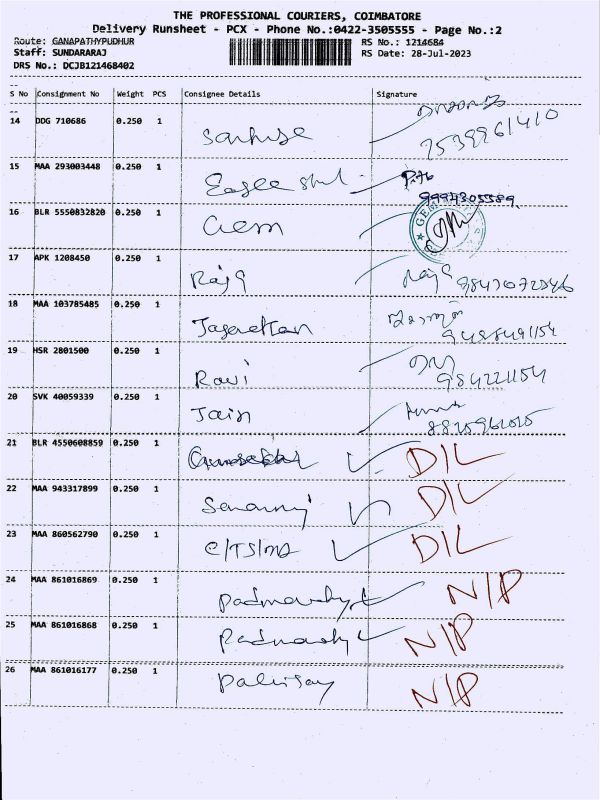 THE PROFESSIONAL COURIERS, COIMBATORE
Delivery Runsheet - PCX - Phone No.:0422-3505555 - Page No.:2
Route: GANAPATHYPUDHUR
RS No.: 1214684
Staff: SUNDARARAJ
RS Date: 28-Jul-2023
DRS No.: DCJB121468402
S No Consignment No Weight PCS Consignee Details Signature
14 DDG 710686 0.250 1
7539961410
15 MAA 293003448 0.250 1 Eagle
9994305589
16 BLR 5550832820 0.250 1 Gem
17 APK 1208450 0.250 1 Raja Raja
18 MAA 103785485 0.250 1
9498491154
19 HSR 2801500 0.250 1 Ravi
984221154
20 SVK 40059339 0.250 1 Jain
21 BLR 4550608859 0.250 1 D/L
22 MAA 943317899 0.250 1 D/L
23 MAA 860562790 0.250 1 D/L
24 MAA 861016869 0.250 1 N/P
25 MAA 861016868 0.250 1 N/P
26 MAA 861016177 0.250 1 N/P